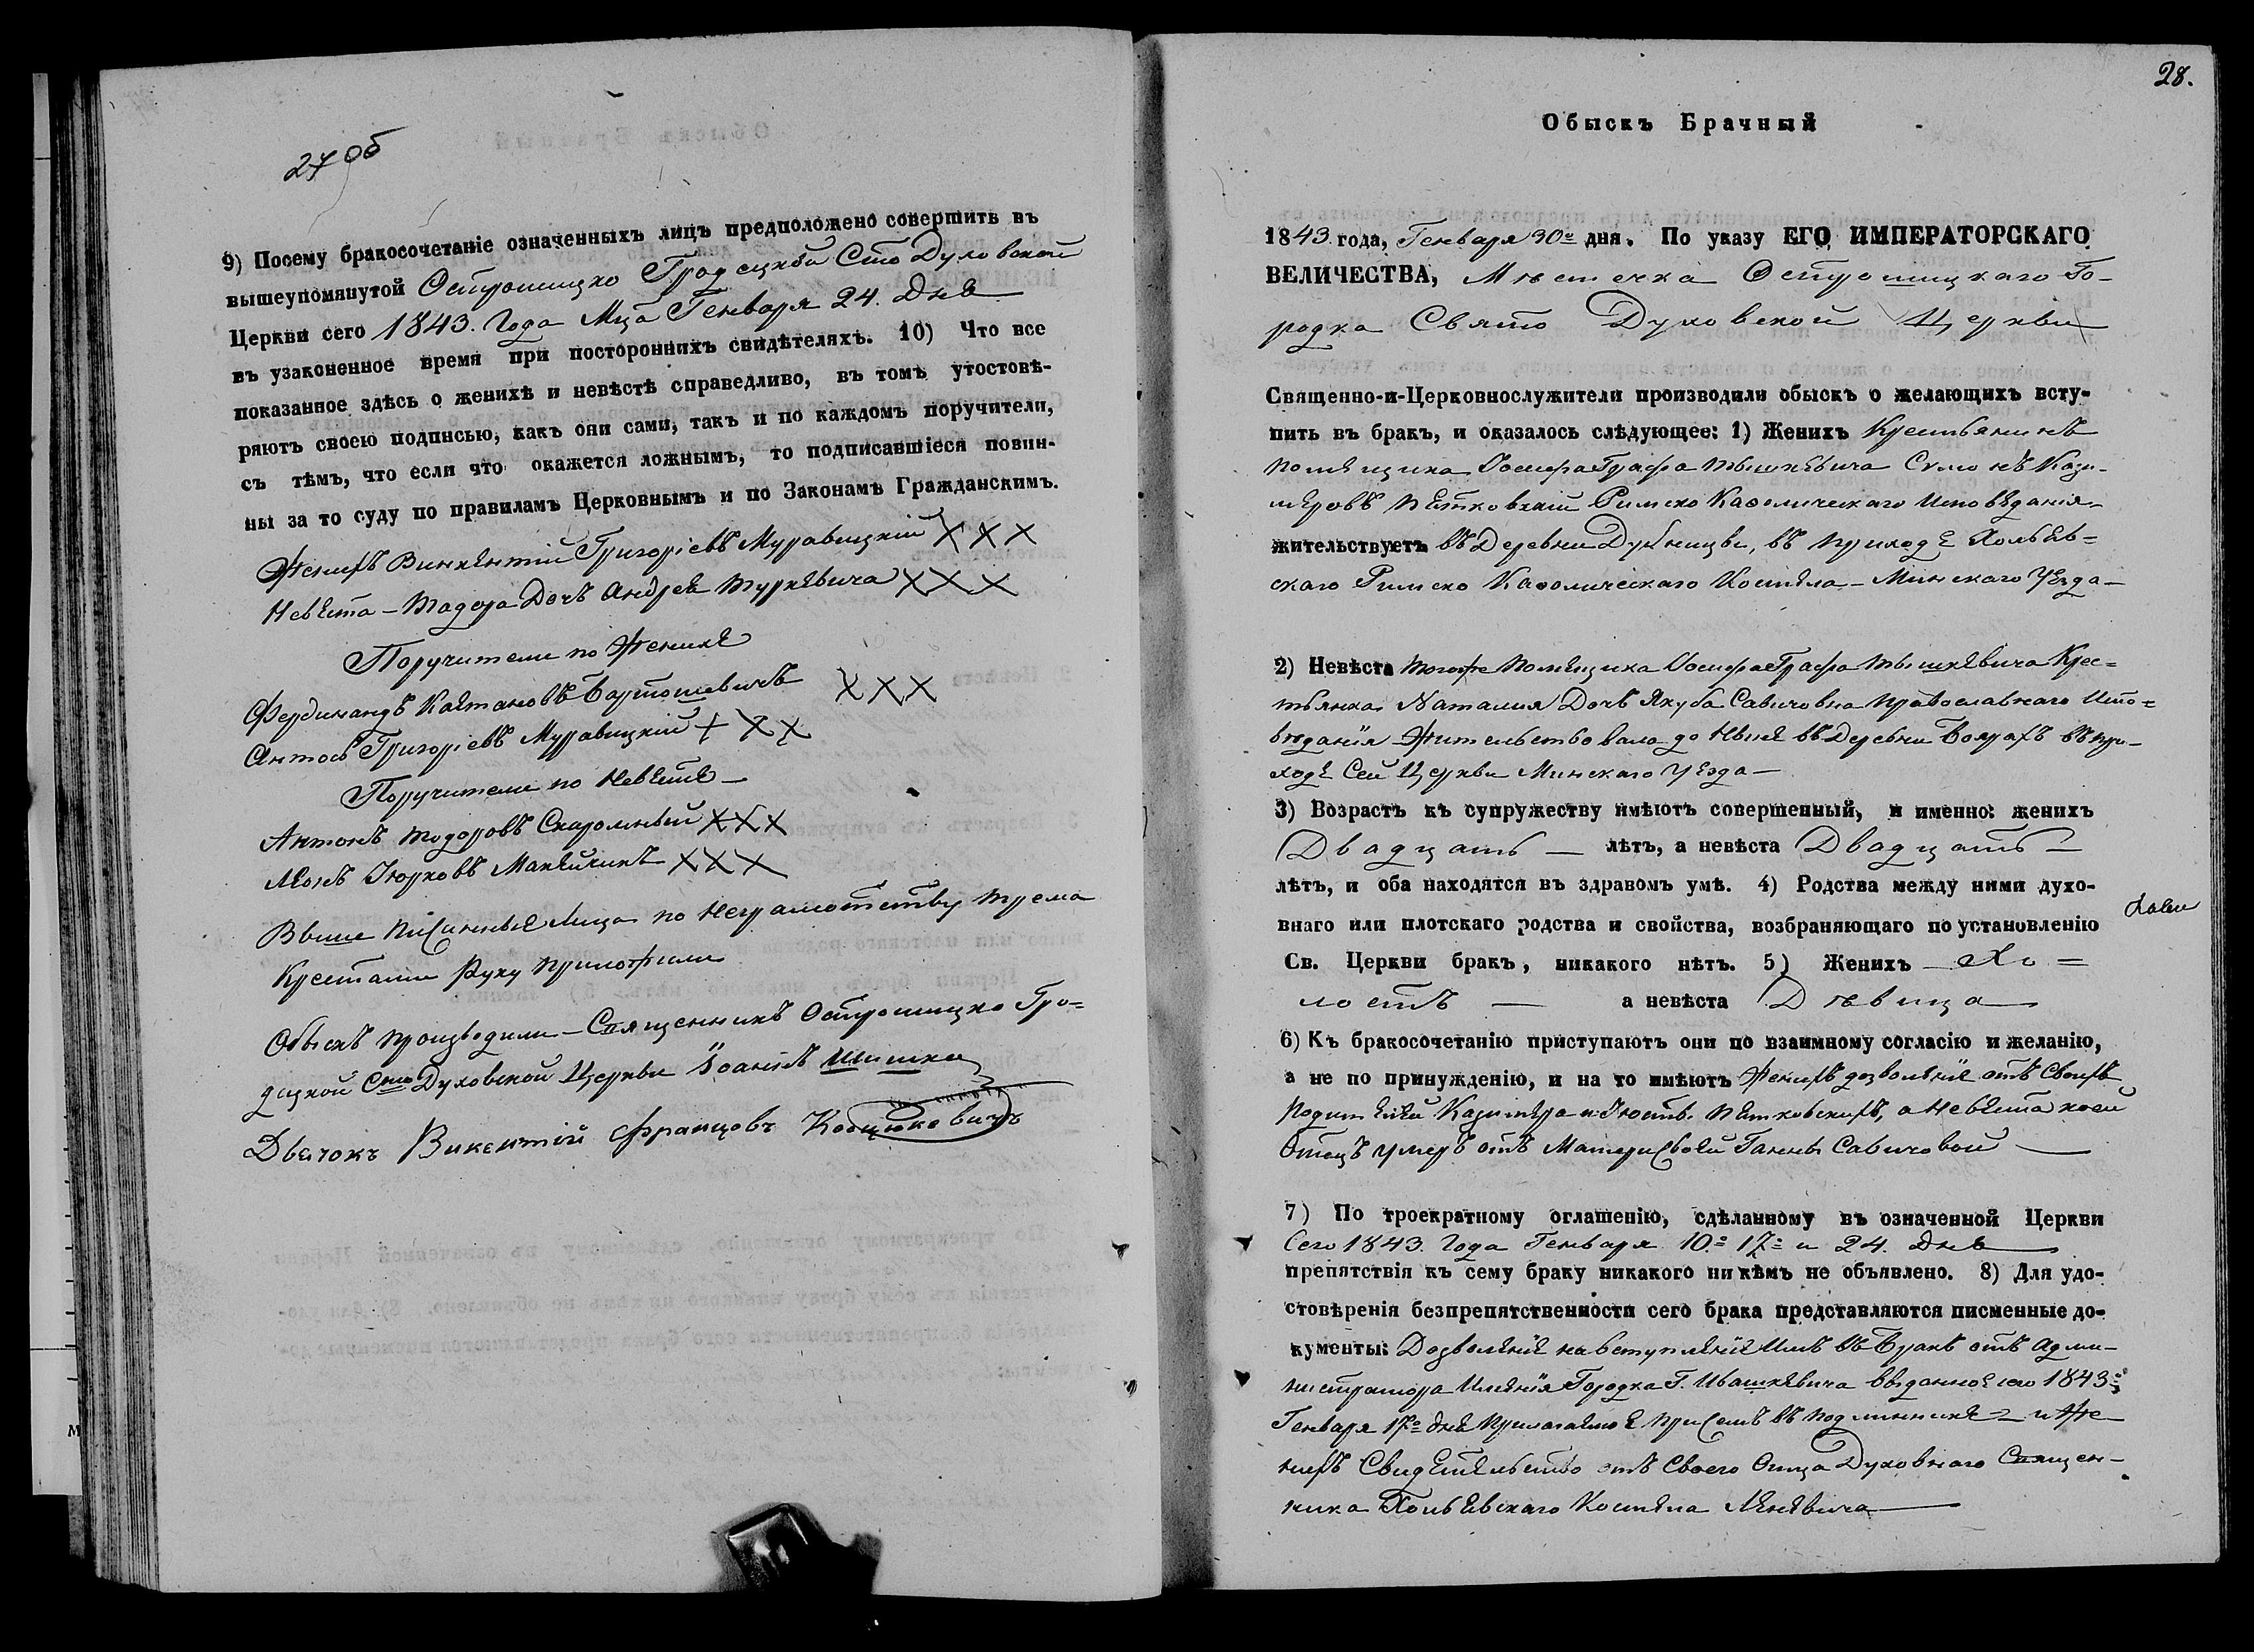 27 об
9) Посему бракосочетаніе означенныхъ лицъ предположено совершить въ
вышеупомянутой Острошицко Градецкой Сто Духовской
Церкви сего 1843. Года Мца Генваря 24. Дня
въ узаконенное время при постороннихъ свидѣтеляхъ. 10) Что все
показанное здѣсь о женихѣ и невѣстѣ справедливо, въ томъ утостовѣ-
ряютъ своею подписью, какъ они сами, такъ и по каждомъ поручители,
съ тѣмъ, что если что окажется ложнымъ, то подписавшіеся повин-
ны за то суду по правиламъ Церковнымъ и по Законамъ Гражданскимъ.
Женихъ Винкентій Григоріевъ Муравицкій ХХХ
Невѣста – Тадора Дочъ Андрея Туркевича ХХХ
Поручители по Женихѣ
Фердинандъ Каетановъ Бартошевичъ ХХХ
Антось Григоріевъ Муравицкій + Х Х
Поручители по Невѣстѣ –
Антонъ Тодоровъ Скаромный ХХХ
Леонъ Іюрковъ Макейчикъ ХХХ
Выше писанные Лица по Неграмотству трема
Крестами Руку приложили
Обыскъ производили – Священникъ Острошицко Гро=
децкой Сто Духовской Церкви Іоаннъ Шишка
Дьячокъ Викентій Францовъ Костюковичъ
28.
Обыскъ Брачный
1843 года, Генваря 30го дня. По указу ЕГО ИМПЕРАТОРСКАГО
ВЕЛИЧЕСТВА, Мѣстечка Острошицкаго Го-
родка Свято Духовской Церкви
Священно-и-Церковнослужители производили обыскъ о желающихъ всту-
пить въ бракъ, и оказалось слѣдующее: 1) Женихъ Крестьянинъ
помѣщика Іосифа Графа Тышкевича Сымонъ Кази-
меровъ Петковскій Римско Каѳолическаго Исповѣданія
жительствуетъ въ Деревни Дубницы, въ приходѣ Хольев=
скаго Римско Каѳолическаго Костела – Минскаго Уезда –
2) Невѣста Тогоже Помѣщика Іосифа Графа Тышкевича Крес=
тьянка Наталия Дочъ Якуба Савичовна православнаго Испо=
вѣданія Жительствовала до Ныне въ Деревни Боярахъ въ при-
ходѣ Сей Церкви Минскаго Уезда –
3) Возрастъ къ супружеству имѣютъ совершенный, и именно: женихъ
Двадцать – лѣтъ, а невѣста Двадцать –
лѣтъ, и оба находятся въ здравомъ умѣ. 4) Родства между ними духо-
внаго или плотскаго родства и свойства, возбраняющаго по установленію
Св. Церкви бракъ, никакого нѣтъ. 5) Женихъ – Хо =
лостъ – а невѣста Дѣвица
6) Къ бракосочетанію приступаютъ они по взаимному согласію и желанію,
а не по принужденію, и на то имѣютъ Женихъ дозволеніе отъ Своихъ
Родителей Казимера и Іюсты. Петковскихъ, а Невѣста коей
Отецъ умеръ отъ Матери Своей Ганны Савичовой
7) По троекратному оглашенію, сдѣланному въ означенной Церкви
Сего 1843. Года Генваря 10.= 17.= и 24. Дня
препятствія къ сему браку никакого ни кѣмъ не объявлено. 8) Для удо-
стовѣренія безпрепятственности сего брака представляются писменные до-
кументы: Дозволеніе на вступленіе Имъ въ Бракъ отъ Адми-
нистратора Именія Городка Г. Ивашкевича выданное сего 1843=
Генваря 17го Дня Прилагаемое при семъ въ подлинникѣ – и Же-
нихъ Свидетельство отъ Своего Отца Духовнаго Священ-
ника Хольевскаго Костела Леневича